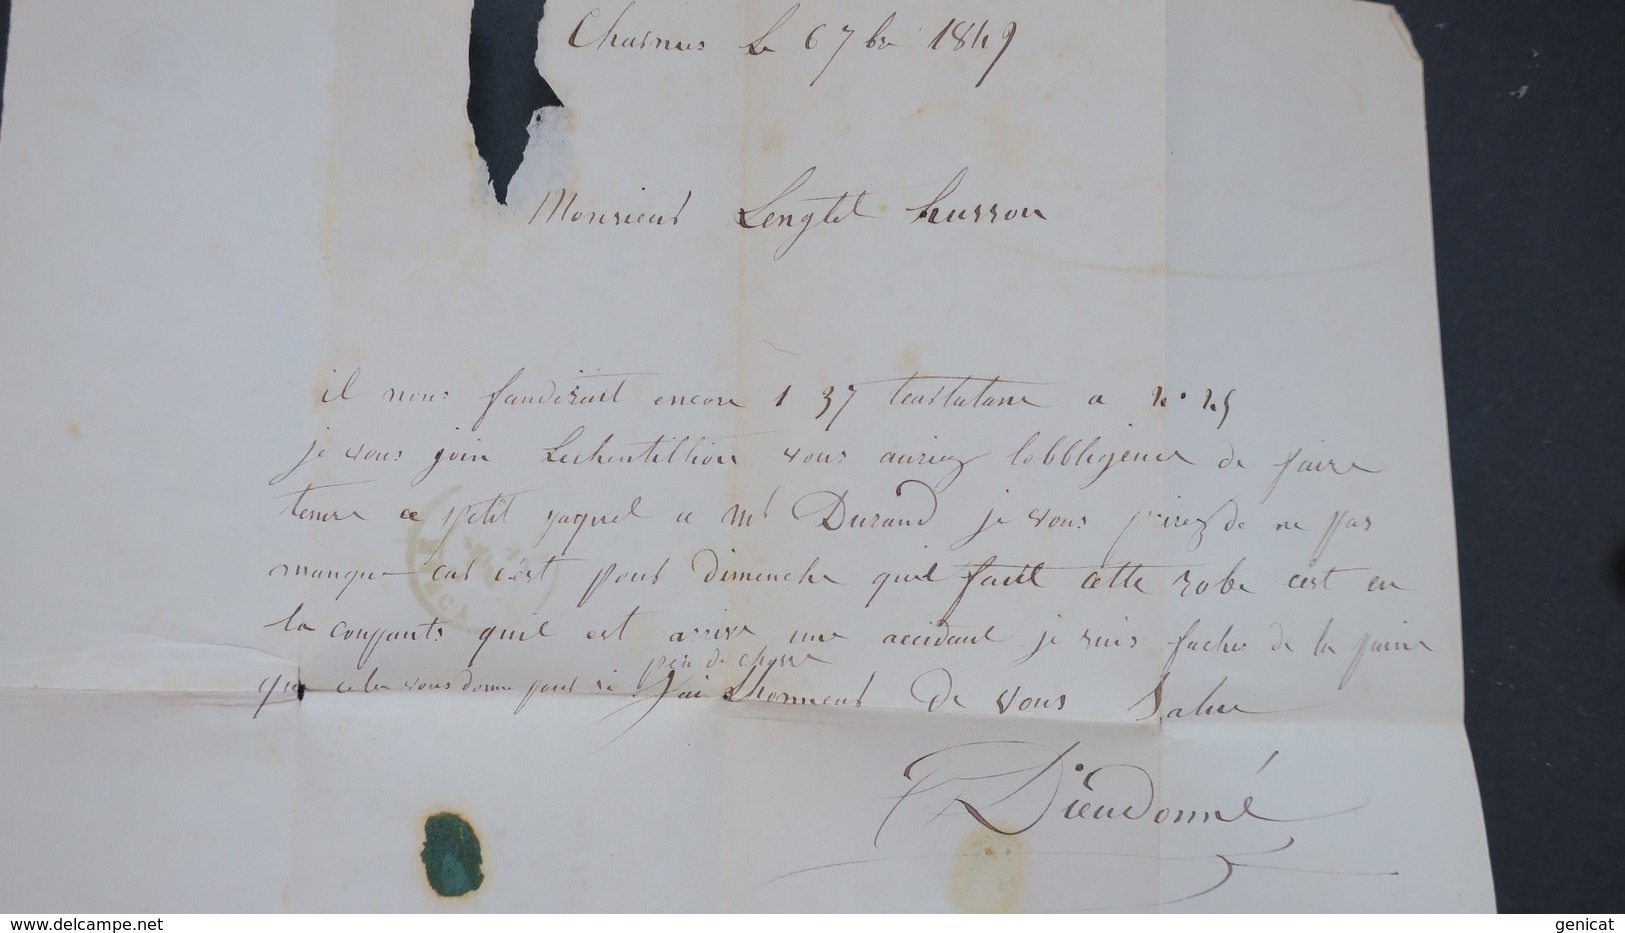 Charmes Le 6 7bre 1849
Monsieur Lenglet husson
il nous faudrait encore 1 37 tartatane a
je vous join Lechentillion vous auriez lobbligence de faire
tenire ce petit paquet a Mr Durand je vous prirez de ne pas
manque car c'est pour dimenche quil fait cette robe cest en
la coupants quil est arrive une accidant je suis facher de la paine
que cela vous donne pour si peu de chosse
J'ai Lhonneur de vous Salue
Dieudonné
genicat